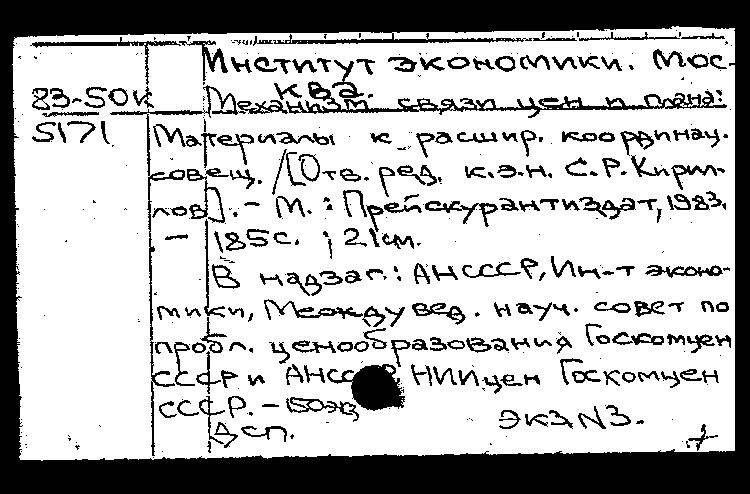 Институт экономики. Мос-
ква.
83-50к Механизм связи цен и плана:
5171 Материалы к расшир. координац.
совещ. /[Отв. ред. к.э.н. С.Р.Кирил-
лов]. - М.: Прейскурантиздат, 1983.
- 185с. ; 21см.
В надзаг.: АНСССР, Ин-т эконо-
мики, Междувед. науч. совет по
пробл. ценообразования Госкомцен
СССР и АНСССР, НИИцен Госкомцен
СССР. - 150экз
Дсп. экз N3.